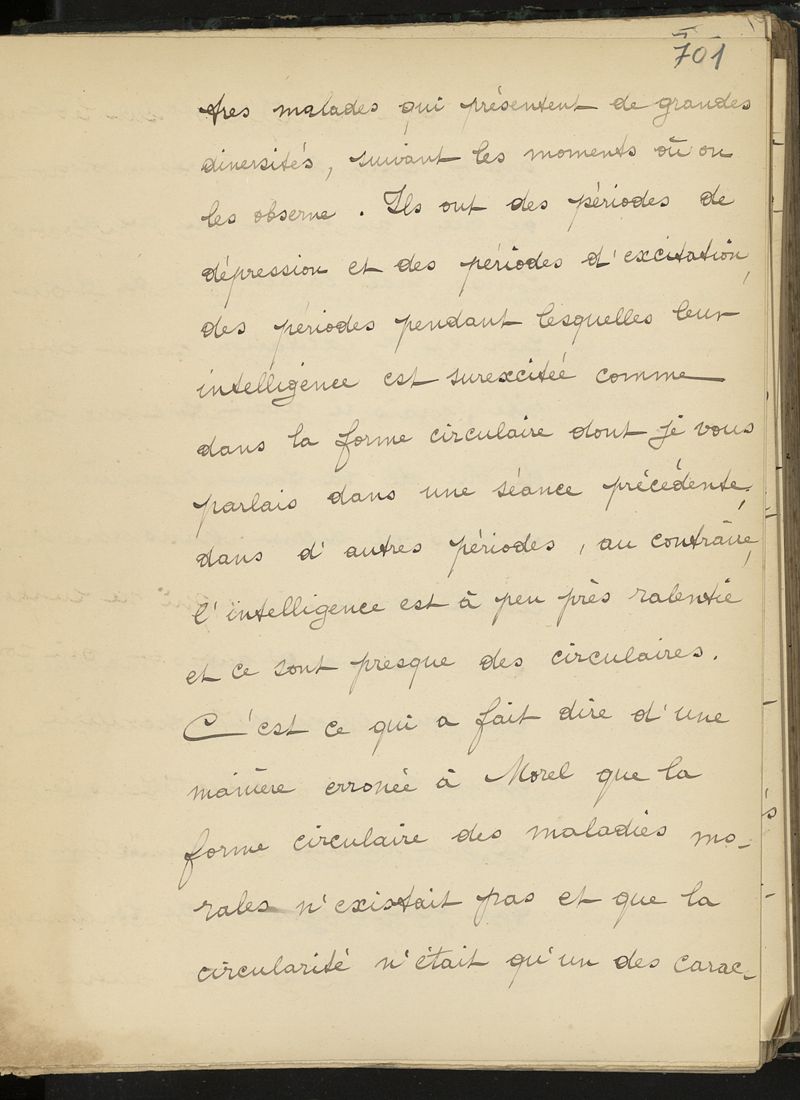 701
tres malades qui présentent de grandes
diversités, suivant les moments où on
les observe. Ils ont des périodes de
dépression et des périodes d'excitation,
des périodes pendant lesquelles leur
intelligence est surexcitée comme
dans la forme circulaire dont je vous
parlais dans une séance précédente;
dans d'autres périodes, au contraire,
l'intelligence est à peu près ralentie
et ce sont presque des circulaires.
C'est ce qui a fait dire d'une
manière erronée à Morel que la
forme circulaire des maladies mo-
rales n'existait pas et que la
circularité n'était qu'un des carac-